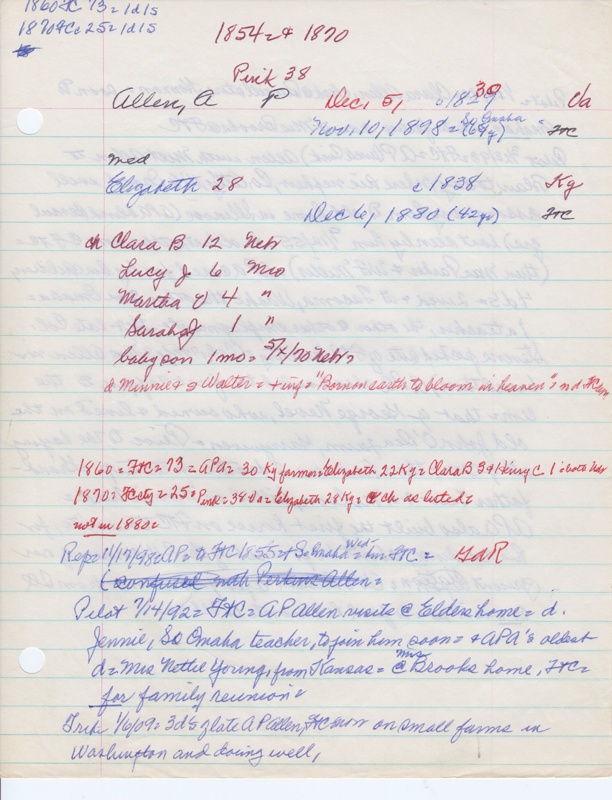 1860 FC 73 = 1d1s
1870 FC = 25 = 1d1s
1854 = & 1870
Pink 38
Allen, A P Dec, 5, c 1829 30 Va
Nov, 10, 1898 = So Omaha (69y) FtC
med
Elizabeth 28 c 1838 Kg
Dec 6, 1880 (42yr) FtC
ch Clara B 12 Nebr
Lucy J 6 Mo
Martha V 4 "
Sarah J 1 "
baby son 1 mo = 5/4/70 Nebr =
d Minnie & s Walter = + inf = "Born on earth to bloom in heaven" = n d FtC cem
1860 = FtC = 73 = APA = 30 Ky farmer = Elizabeth 22 Kg = Clara B 3 & Henry C 1 = both Nebr
1870 = FC sty = 25 = Pink = 38 Va = Elizabeth 28 Kg = ch as listed =
not in 1880 =
Rep = 11/17/98 = AP = to FtC 1855 = & So Omaha = Wed = bur FtC = GaR
(confused with Perkins Allen =
Pilot 7/14/92 = FtC = A P Allen visits @ Elders home = d.
Jennie, So Omaha teacher, to join him soon = & APA's oldest
d = Mrs Nettie Young, from Kansas = @ Mrs Brooks home, FtC =
for family reunion =
Trib 1/6/09 = 3 d's of late A P Allen, FtC now on small farms in
Washington and doing well,